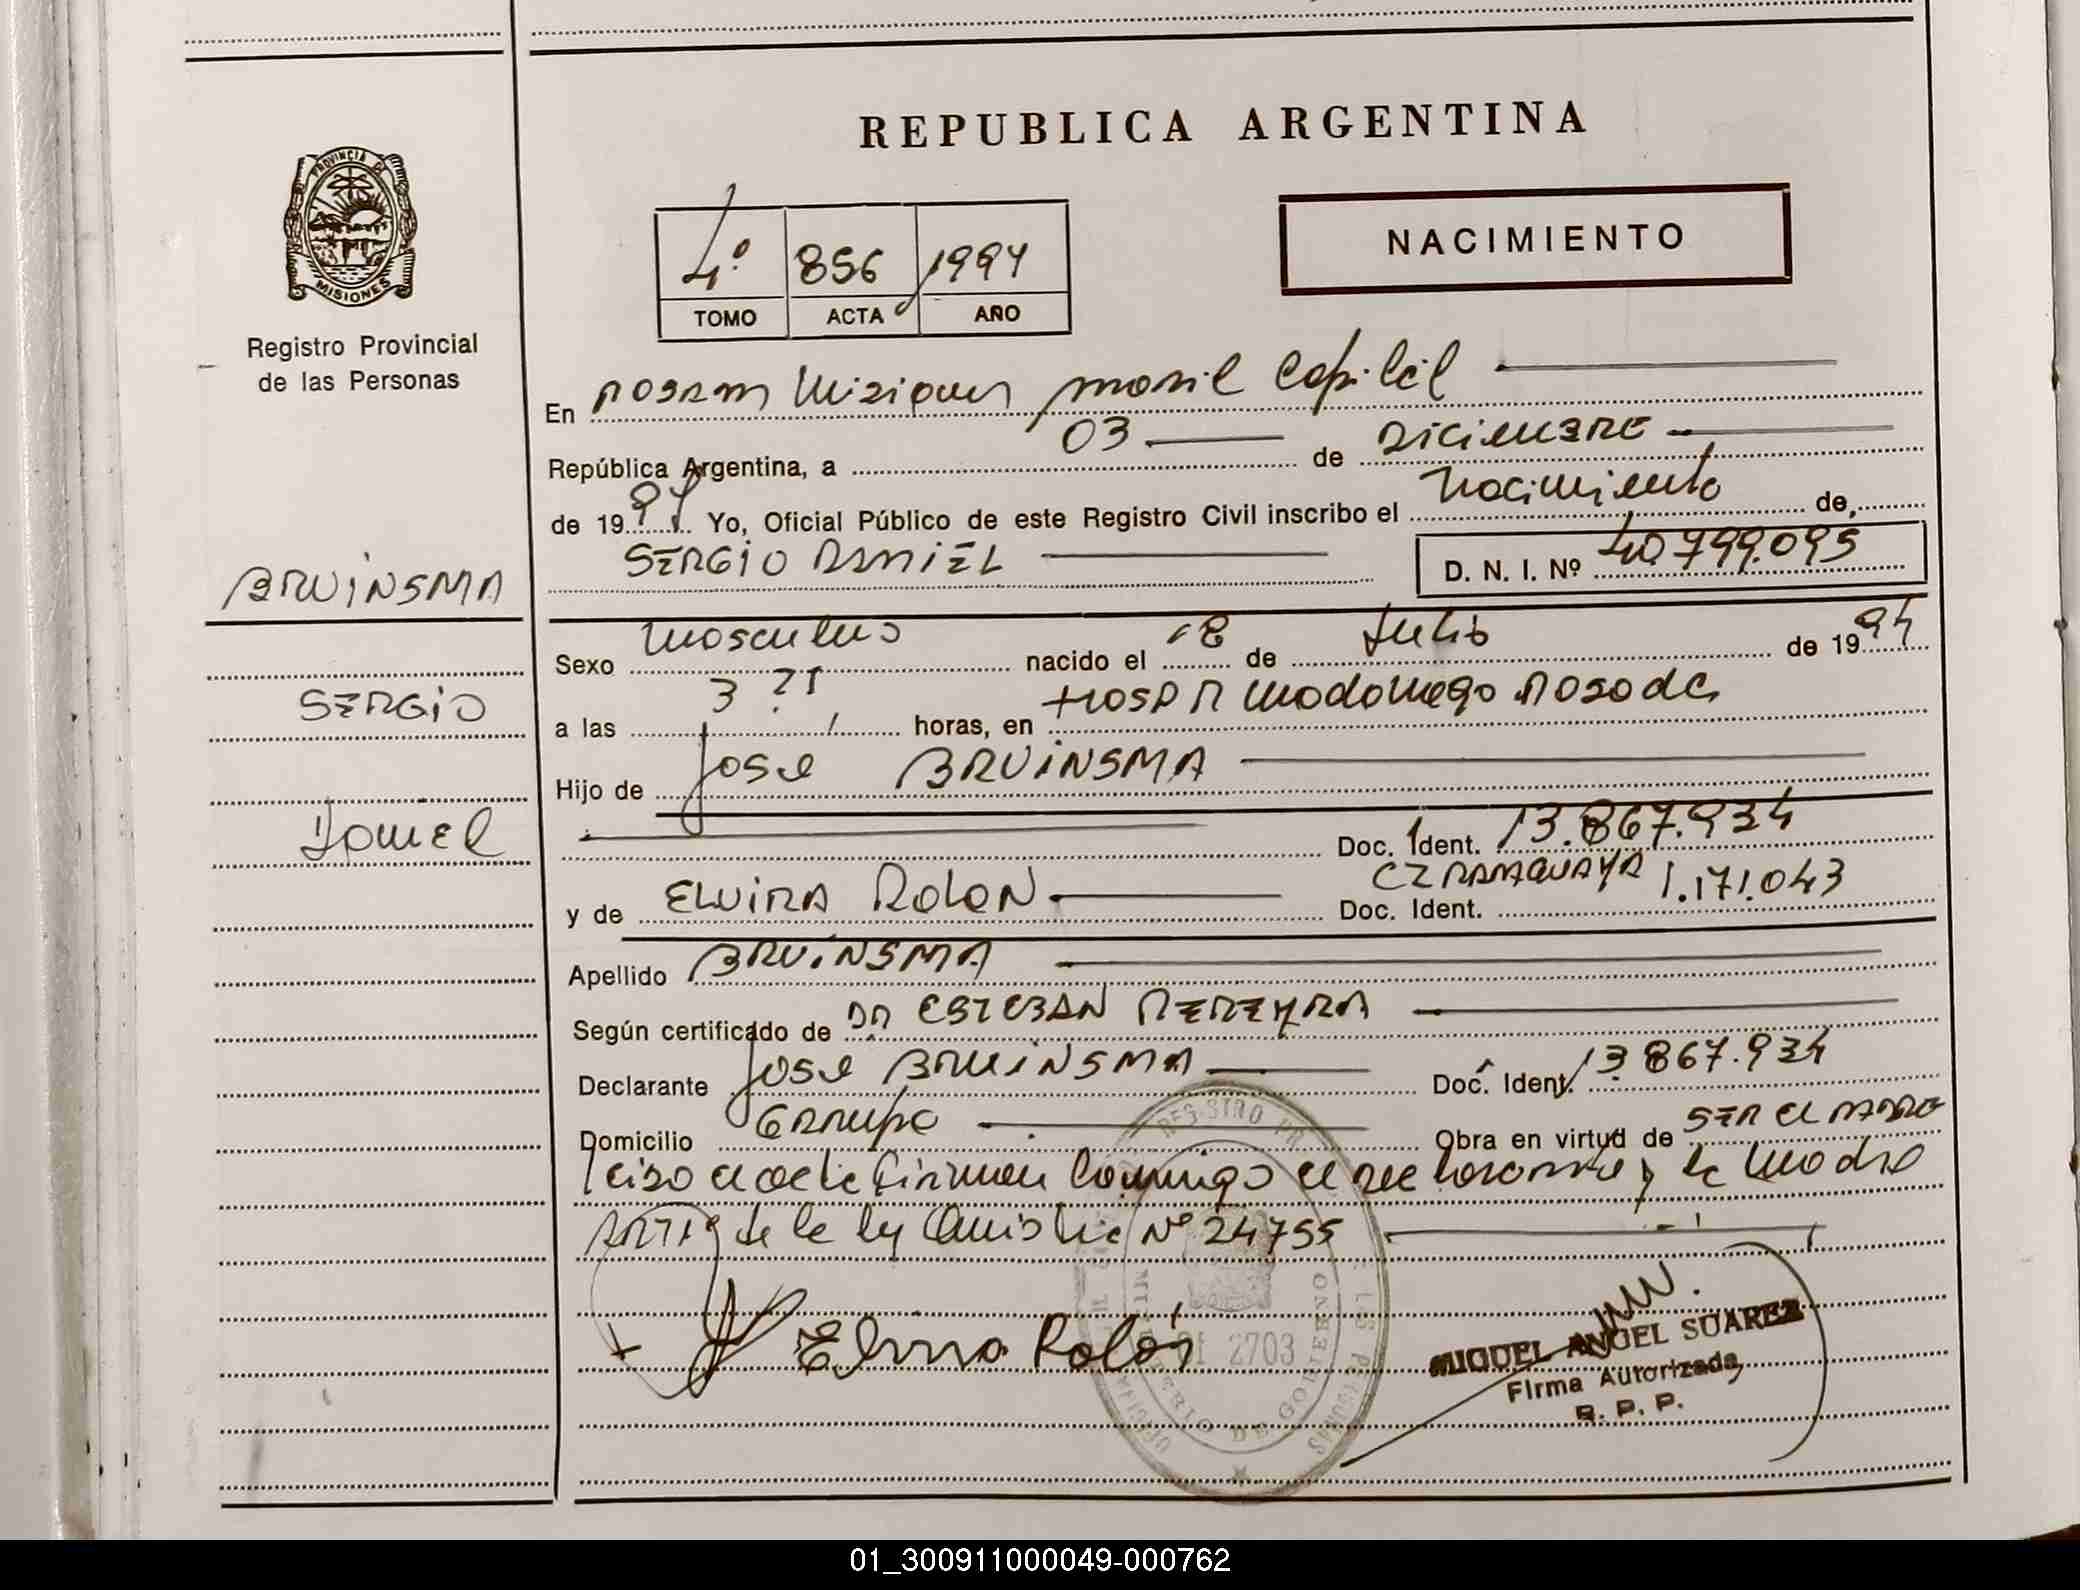 REPUBLICA ARGENTINA
PROVINCIA DE
MISIONES
Registro Provincial
de las Personas
4º 856 1994
TOMO ACTA AÑO
NACIMIENTO
En Misiones movil Capital
República Argentina, a 03 de DICIEMBRE
de 1994 Yo, Oficial Público de este Registro Civil inscribo el Nacimiento de
SERGIO DANIEL
D. N. I. Nº 40.799.095
BRUINSMA
SERGIO
Daniel
Sexo Masculino nacido el 18 de Julio de 1994
a las 3 21 horas, en Hosp R Madariaga Posadas
Hijo de Jose BRUINSMA
Doc. Ident. 13.867.934
y de ELVIRA ROLON Doc. Ident. CI PARAGUAYA 1.171.043
Apellido BRUINSMA
Según certificado de DR ESTEBAN PEREYRA
Declarante Jose BRUINSMA Doc. Ident. 13.867.934
Domicilio Garupa Obra en virtud de SER EL PADRE
Leido el acta firman conmigo el declarante y la Madre
de la ley Amistia Nº 24755
Elvira Rolón
2703
MINISTERIO DE GOBIERNO
MIGUEL ANGEL SUAREZ
Firma Autorizada
R. P. P.
01_300911000049-000762